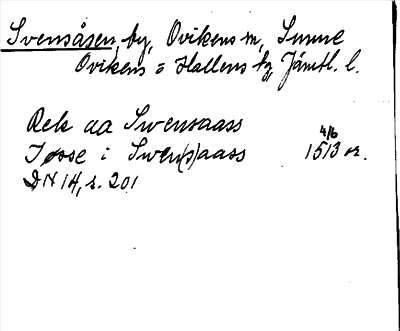 Svensåsen, by, Ovikens sn, Sunne
Ovikens o Hallens tg, Jämtl. l.
Rek aa Swensaass
Josse i Swen(s)aass 4/6 1513 or.
DN 14, s. 201